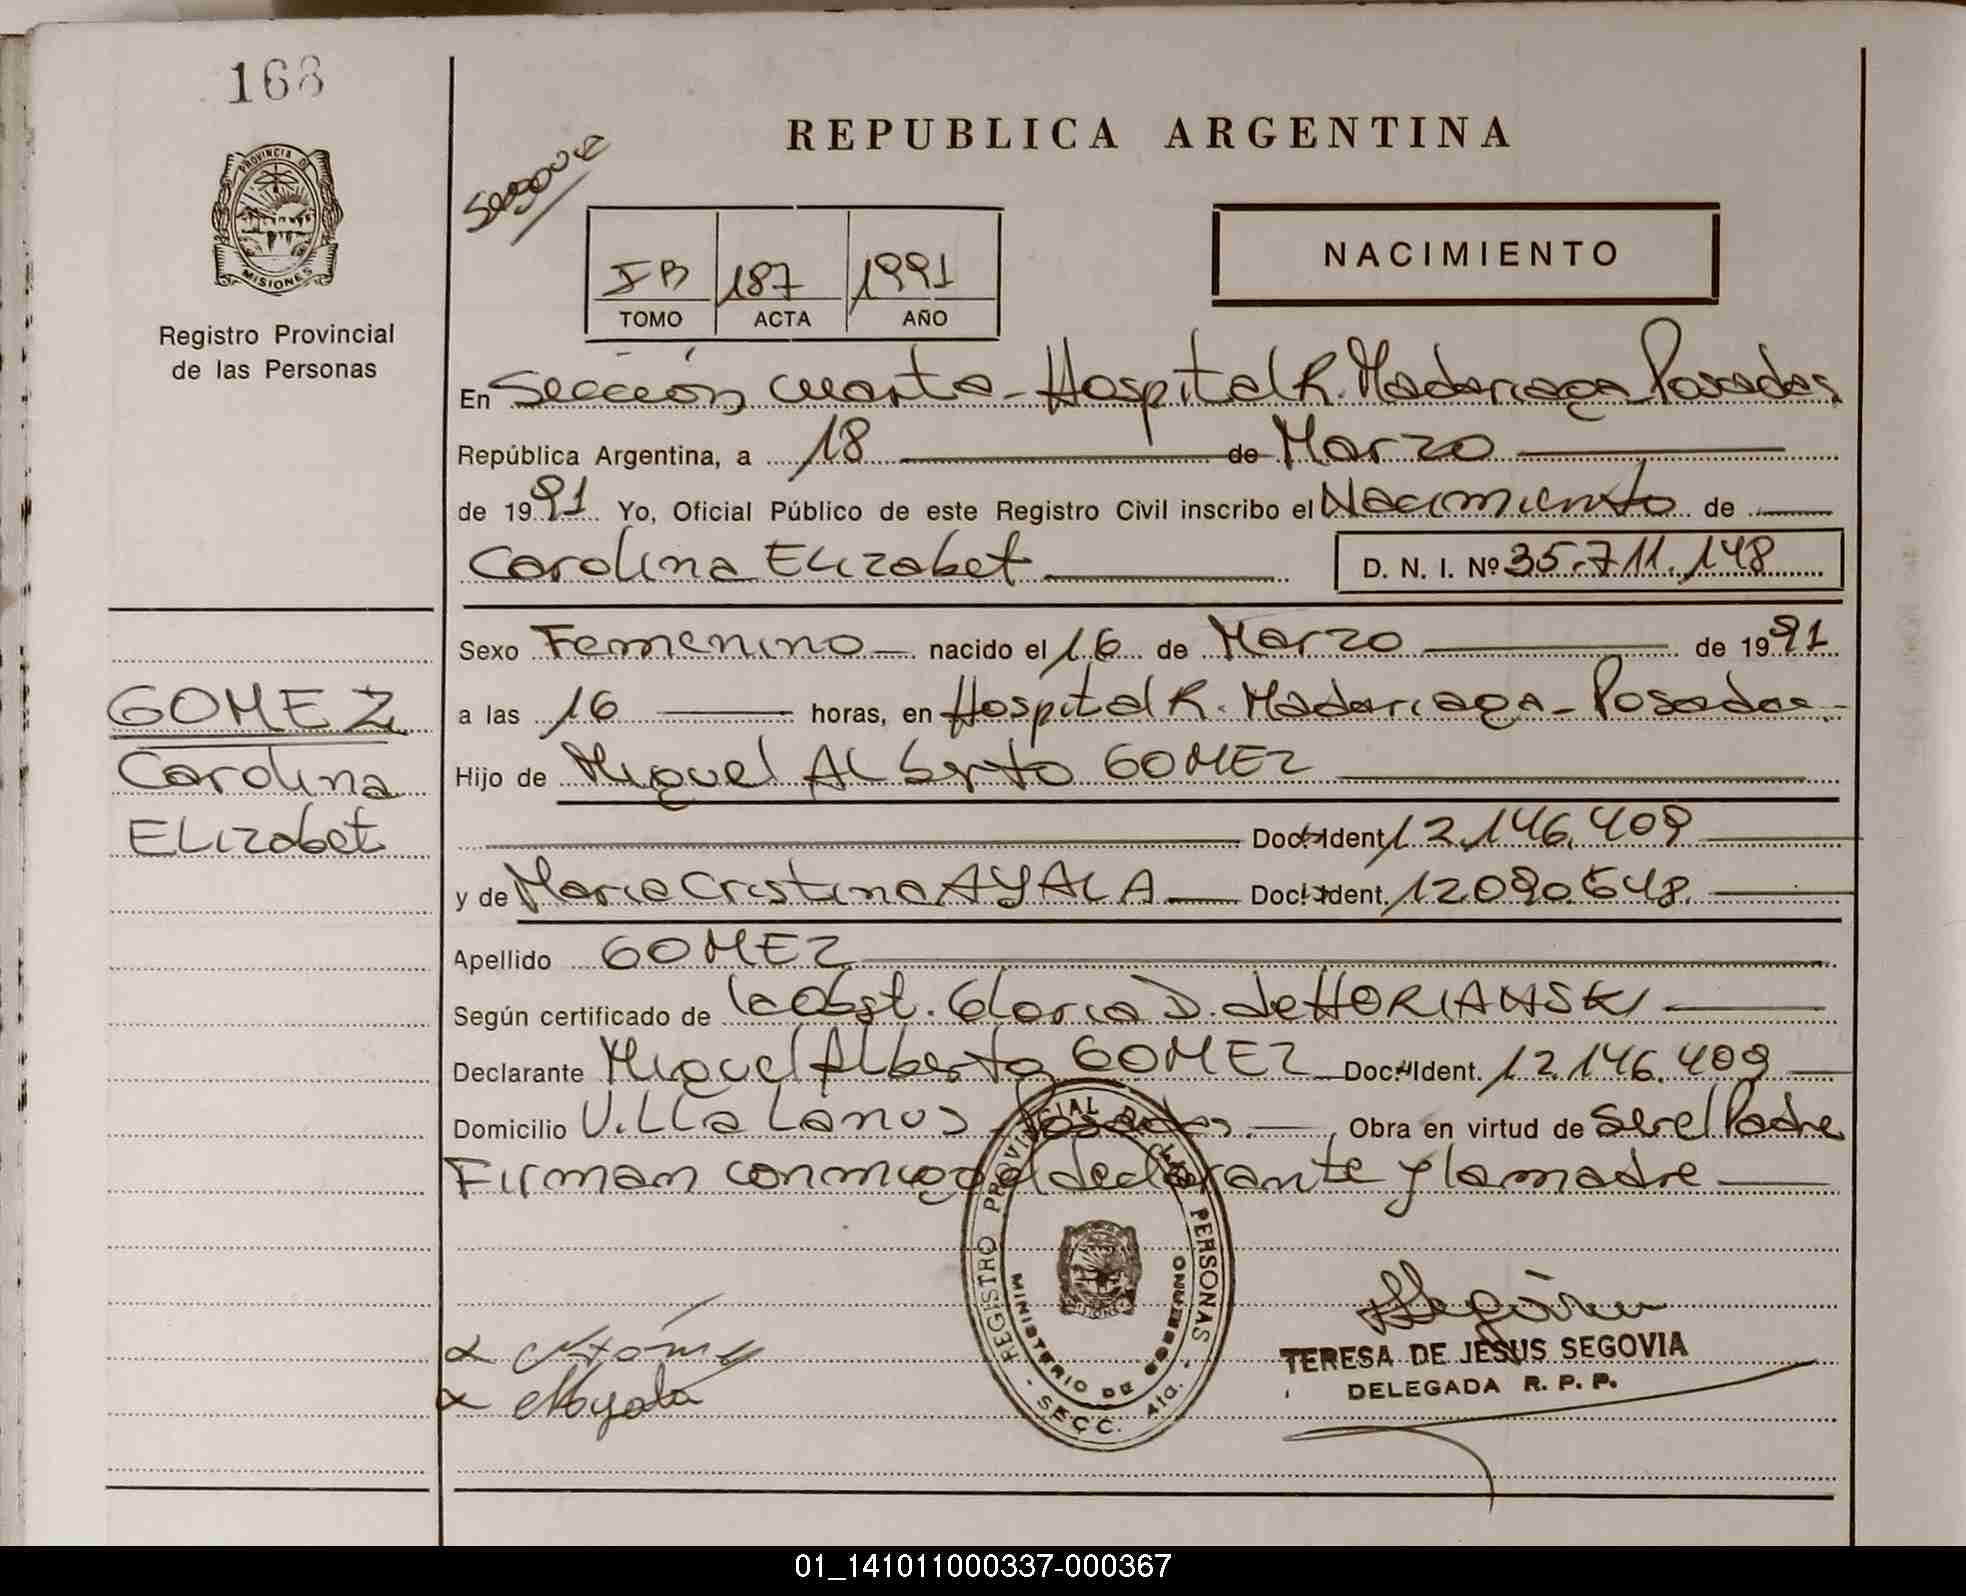 168
PROVINCIA D
MISIONES
Registro Provincial
de las Personas
REPUBLICA ARGENTINA
NACIMIENTO
187 1991
TOMO ACTA AÑO
En Sección Cuarta - Hospital R. Madariaga Posadas
República Argentina, a 18 de Marzo
de 1991 Yo, Oficial Público de este Registro Civil inscribo el Nacimiento de
Carolina Elizabet D. N. I. Nº 35.711.148
Sexo Femenino nacido el 16 de Marzo de 1991
a las 16 horas, en Hospital R. Madariaga - Posadas
Hijo de Miguel Alberto GOMEZ
Doc. Ident. 12.146.409
y de Maria Cristina AYALA Doc. Ident. 12.090.648
Apellido GOMEZ
Según certificado de la Obst. Gloria D. de HORIANSKI
Declarante Miguel Alberto GOMEZ Doc. Ident. 12.146.409
Domicilio Villa Lanus Posadas. Obra en virtud de ser el Padre
Firman conmigo el declarante y la madre
GOMEZ
Carolina
Elizabet
REGISTRO PROVINCIAL DE LAS PERSONAS
MINISTERIO DE GOBIERNO
SECC. 4ta.
TERESA DE JESUS SEGOVIA
DELEGADA R. P. P.
01_141011000337-000367